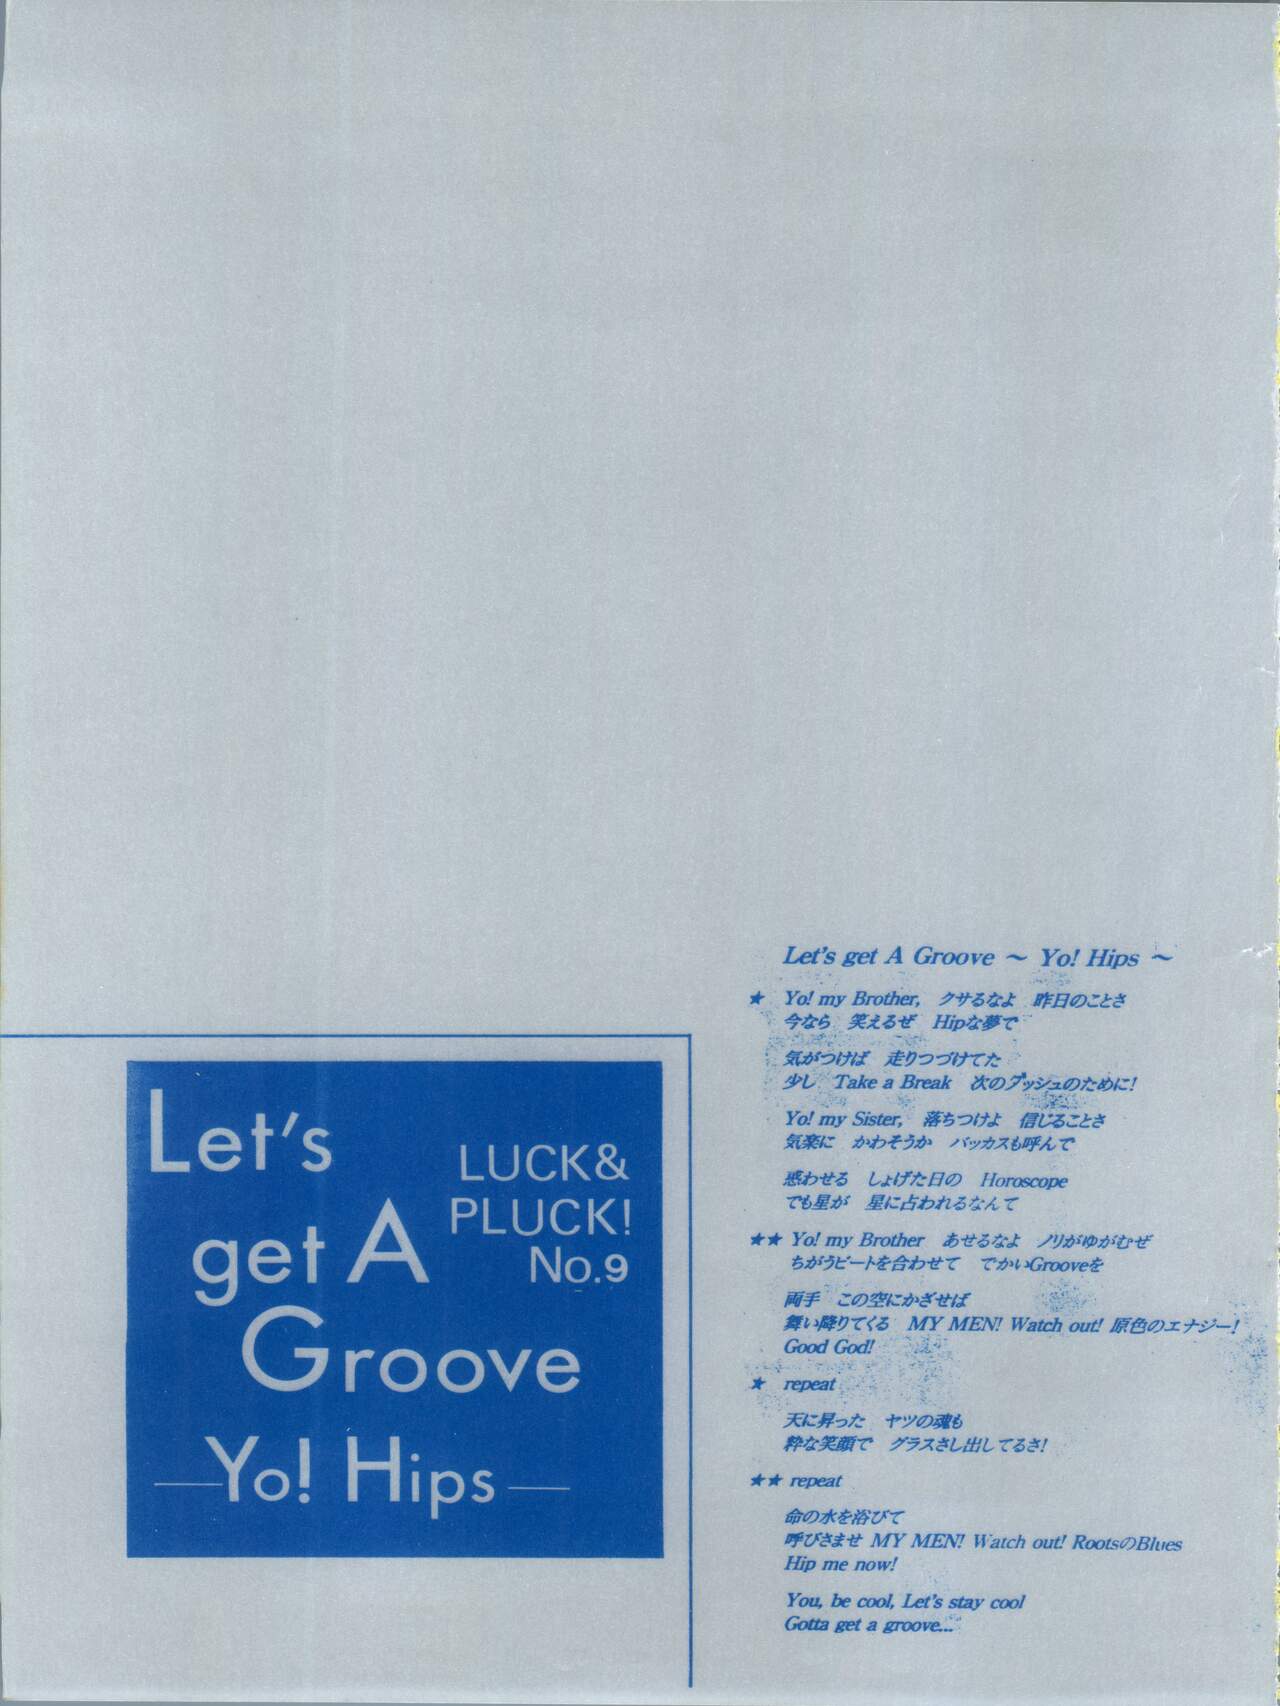 Let's
get A
Groove
Yo! Hips
LUCK&
PLUCK!
No.9
Let's get A Groove ～ Yo! Hips ～
★ Yo! my Brother, クサるなよ 昨日のことさ
今なら 笑えるぜ Hipな夢で
気がつけば 走りつづけてた
少し Take a Break 次のダッシュのために!
Yo! my Sister, 落ちつけよ 信じることさ
気楽に かわそうか バッカスも呼んで
惑わせる しょげた日の Horoscope
でも星が 星に占われるなんて
★★ Yo! my Brother あせるなよ ノリがゆがむぜ
ちがうビートを合わせて でかいGrooveを
両手 この空にかざせば
舞い降りてくる MY MEN! Watch out! 原色のエナジー!
Good God!
★ repeat
天に昇った ヤツの魂も
粋な笑顔で グラスさし出してるさ!
★★ repeat
命の水を浴びて
呼びさませ MY MEN! Watch out! RootsのBlues
Hip me now!
You, be cool, Let's stay cool
Gotta get a groove...